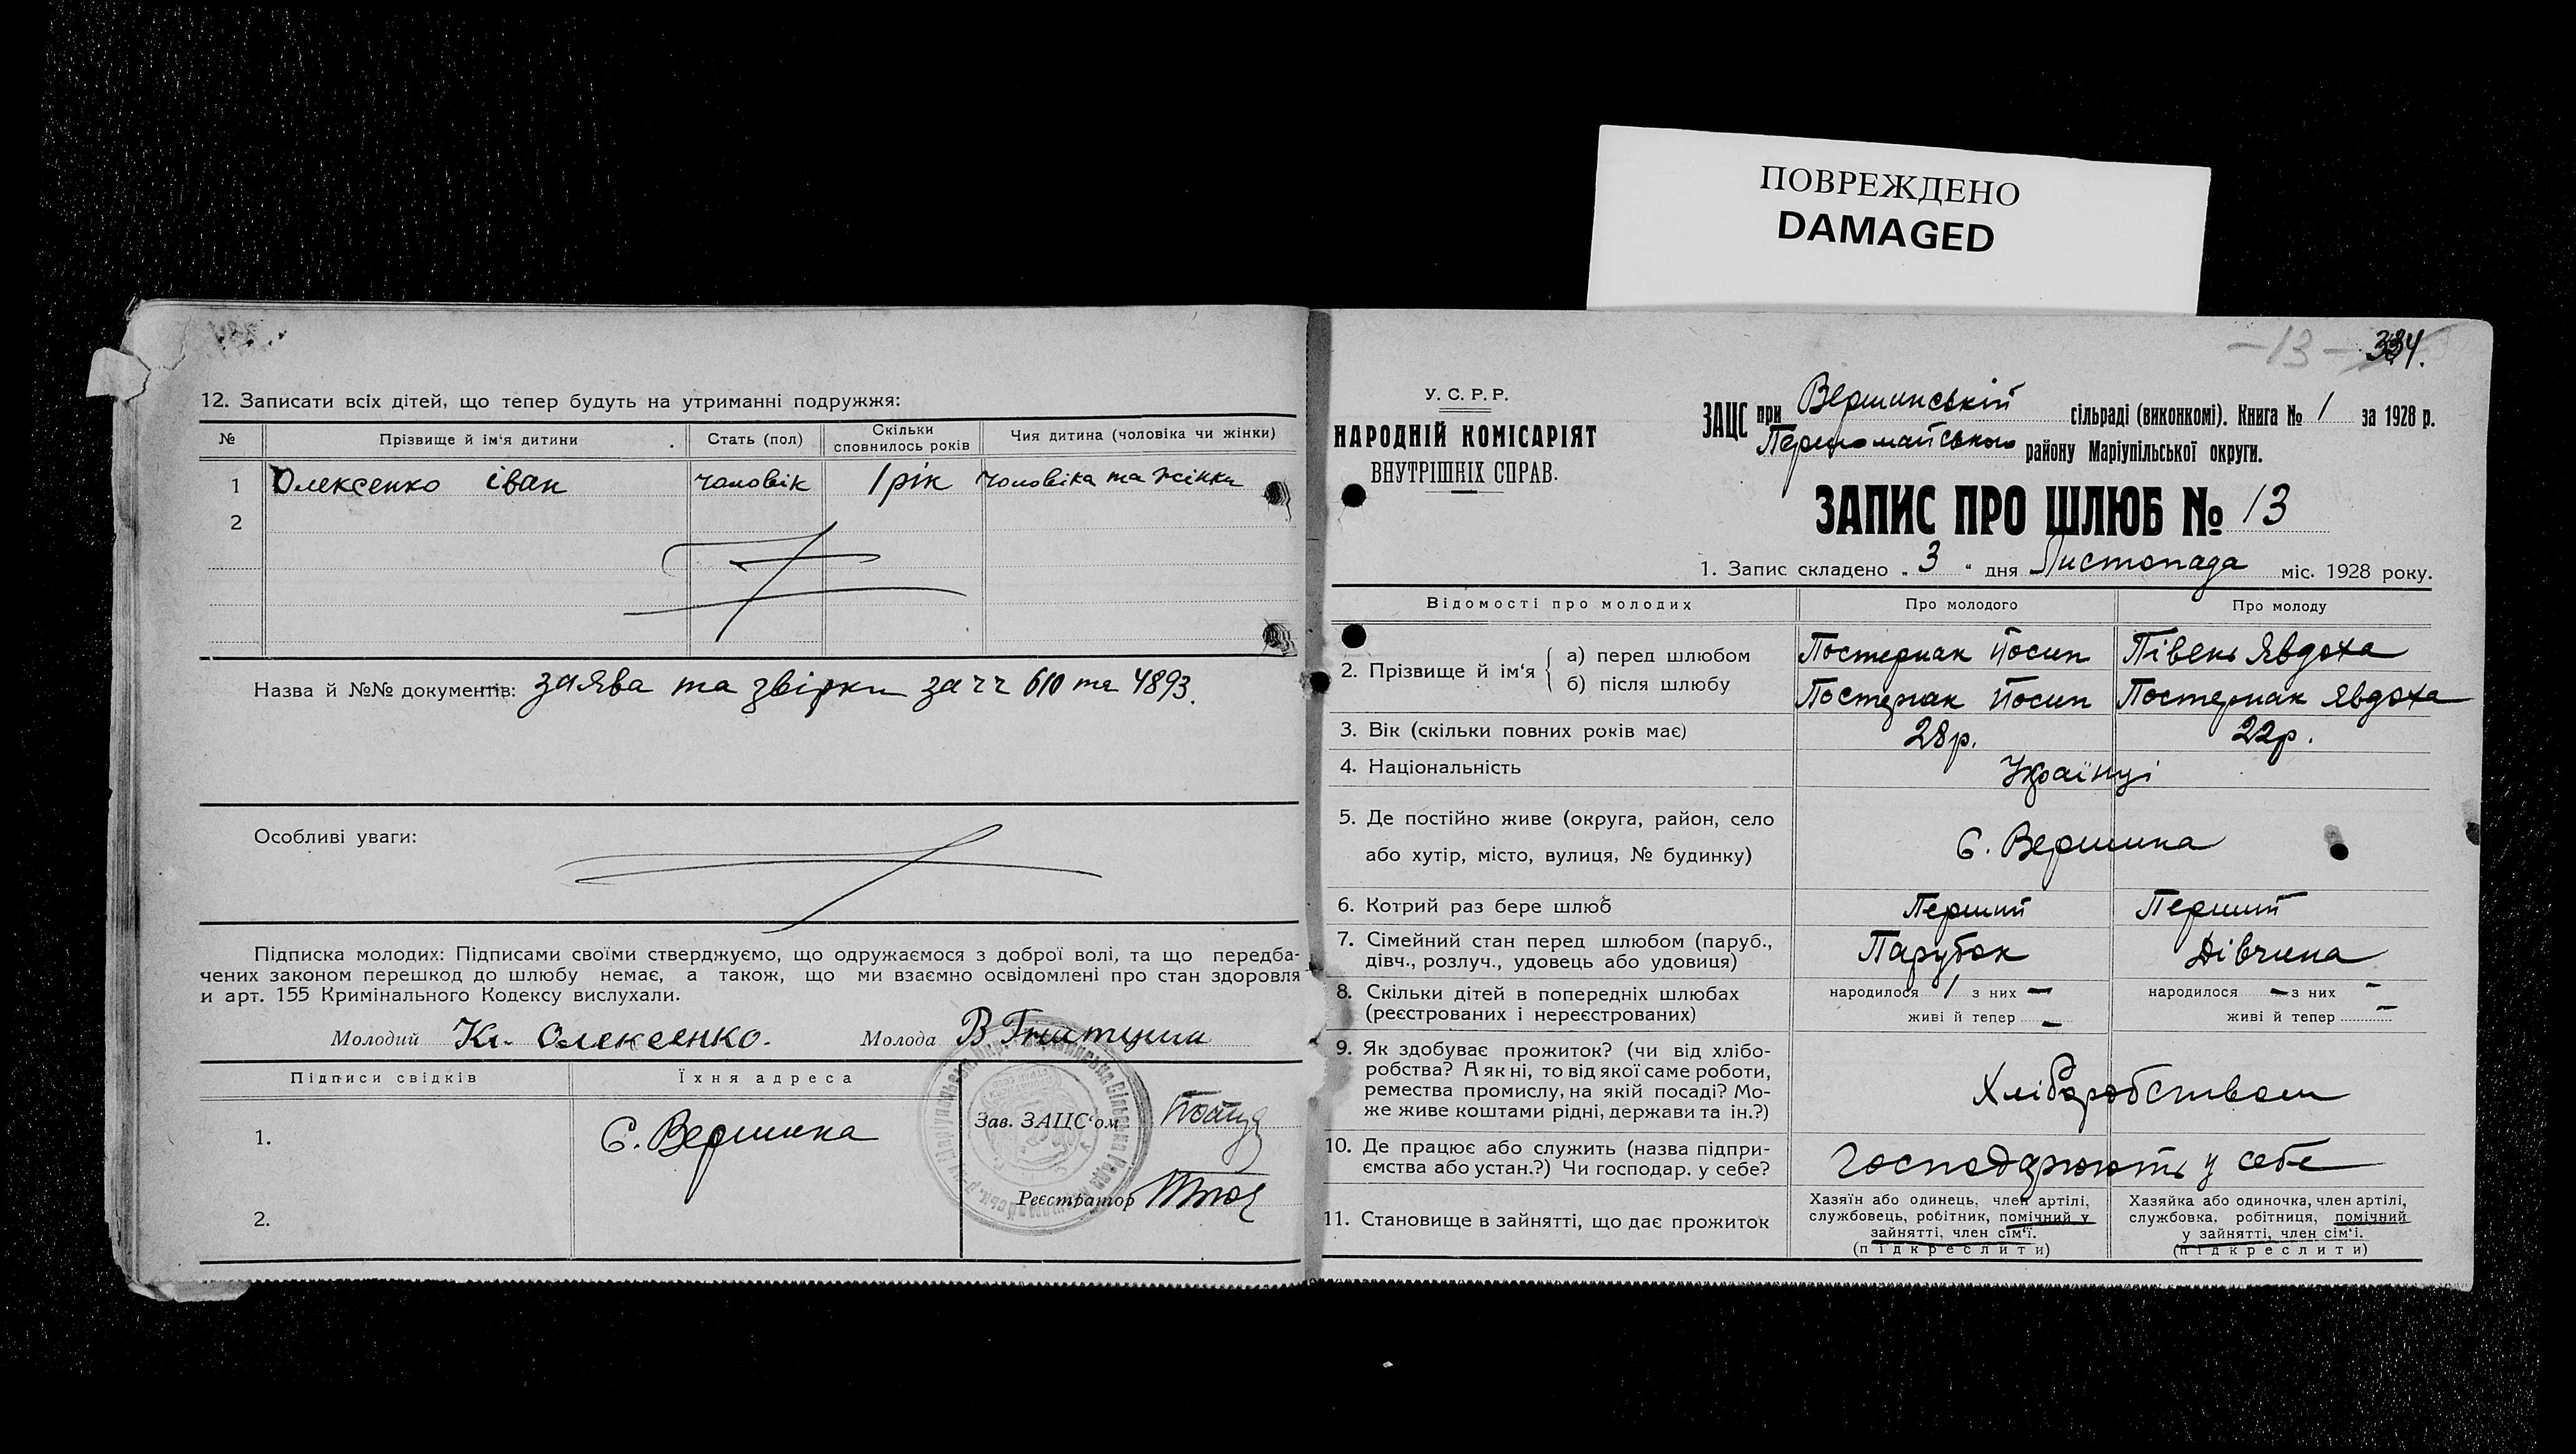 ПОВРЕЖДЕНО
DAMAGED
12. Записати всіх дітей, що тепер будуть на утриманні подружжя:
№ Прізвище й ім'я дитини Стать (пол) Скільки сповнилось років Чия дитина (чоловіка чи жінки)
1 Олексенко іван чоловік 1 рік чоловіка та жінки
2
Назва й №№ документів: заява та звірки за чч 610 та 4893.
Особливі уваги:
Підписка молодих: Підписами своїми стверджуємо, що одружаємося з доброї волі, та що передба-
чених законом перешкод до шлюбу немає, а також, що ми взаємно освідомлені про стан здоровля
и арт. 155 Кримінального Кодексу вислухали.
Молодий Кл. Олексенко. Молода В
Підписи свідків Їхня адреса
1. С. Вершина
2.
Зав. ЗАЦС'ом
Реєстратор
-13- 334.
У. С. Р. Р.
НАРОДНІЙ КОМІСАРІЯТ
ВНУТРІШНІХ СПРАВ.
ЗАЦС при Вершинській сільраді (виконкомі). Книга № 1 за 1928 р.
Першомайського району Маріупільської округи.
ЗАПИС ПРО ШЛЮБ № 13
1. Запис складено „ 3 “ дня Листопада міс. 1928 року.
Відомості про молодих Про молодого Про молоду
2. Прізвище й ім'я
а) перед шлюбом Постернак Йосип Півень Явдоха
б) після шлюбу Постернак Йосип Постернак Явдоха
3. Вік (скільки повних років має) 28 р. 22 р.
4. Національність Українці
5. Де постійно живе (округа, район, село
або хутір, місто, вулиця, № будинку) С. Вершина
6. Котрий раз бере шлюб Перший Перший
7. Сімейний стан перед шлюбом (паруб.,
дівч., розлуч., удовець або удовиця) Парубок Дівчина
8. Скільки дітей в попередніх шлюбах
(реєстрованих і нереєстрованих)
народилося 1 з них —
живі й тепер —
народилося — з них —
живі й тепер —
9. Як здобуває прожиток? (чи від хлібо-
робства? А як ні, то від якої саме роботи,
ремества промислу, на якій посаді? Мо-
же живе коштами рідні, держави та ін.?)
Хліборобством
10. Де працює або служить (назва підпри-
ємства або устан.?) Чи господар. у себе?
господарюють у себе
11. Становище в зайнятті, що дає прожиток
Хазяїн або одинець, член артілі,
службовець, робітник, помічний у
зайнятті, член сім'ї.
(підкреслити)
Хазяйка або одиночка, член артілі,
службовка, робітниця, помічний
у зайнятті, член сім'і.
(підкреслити)